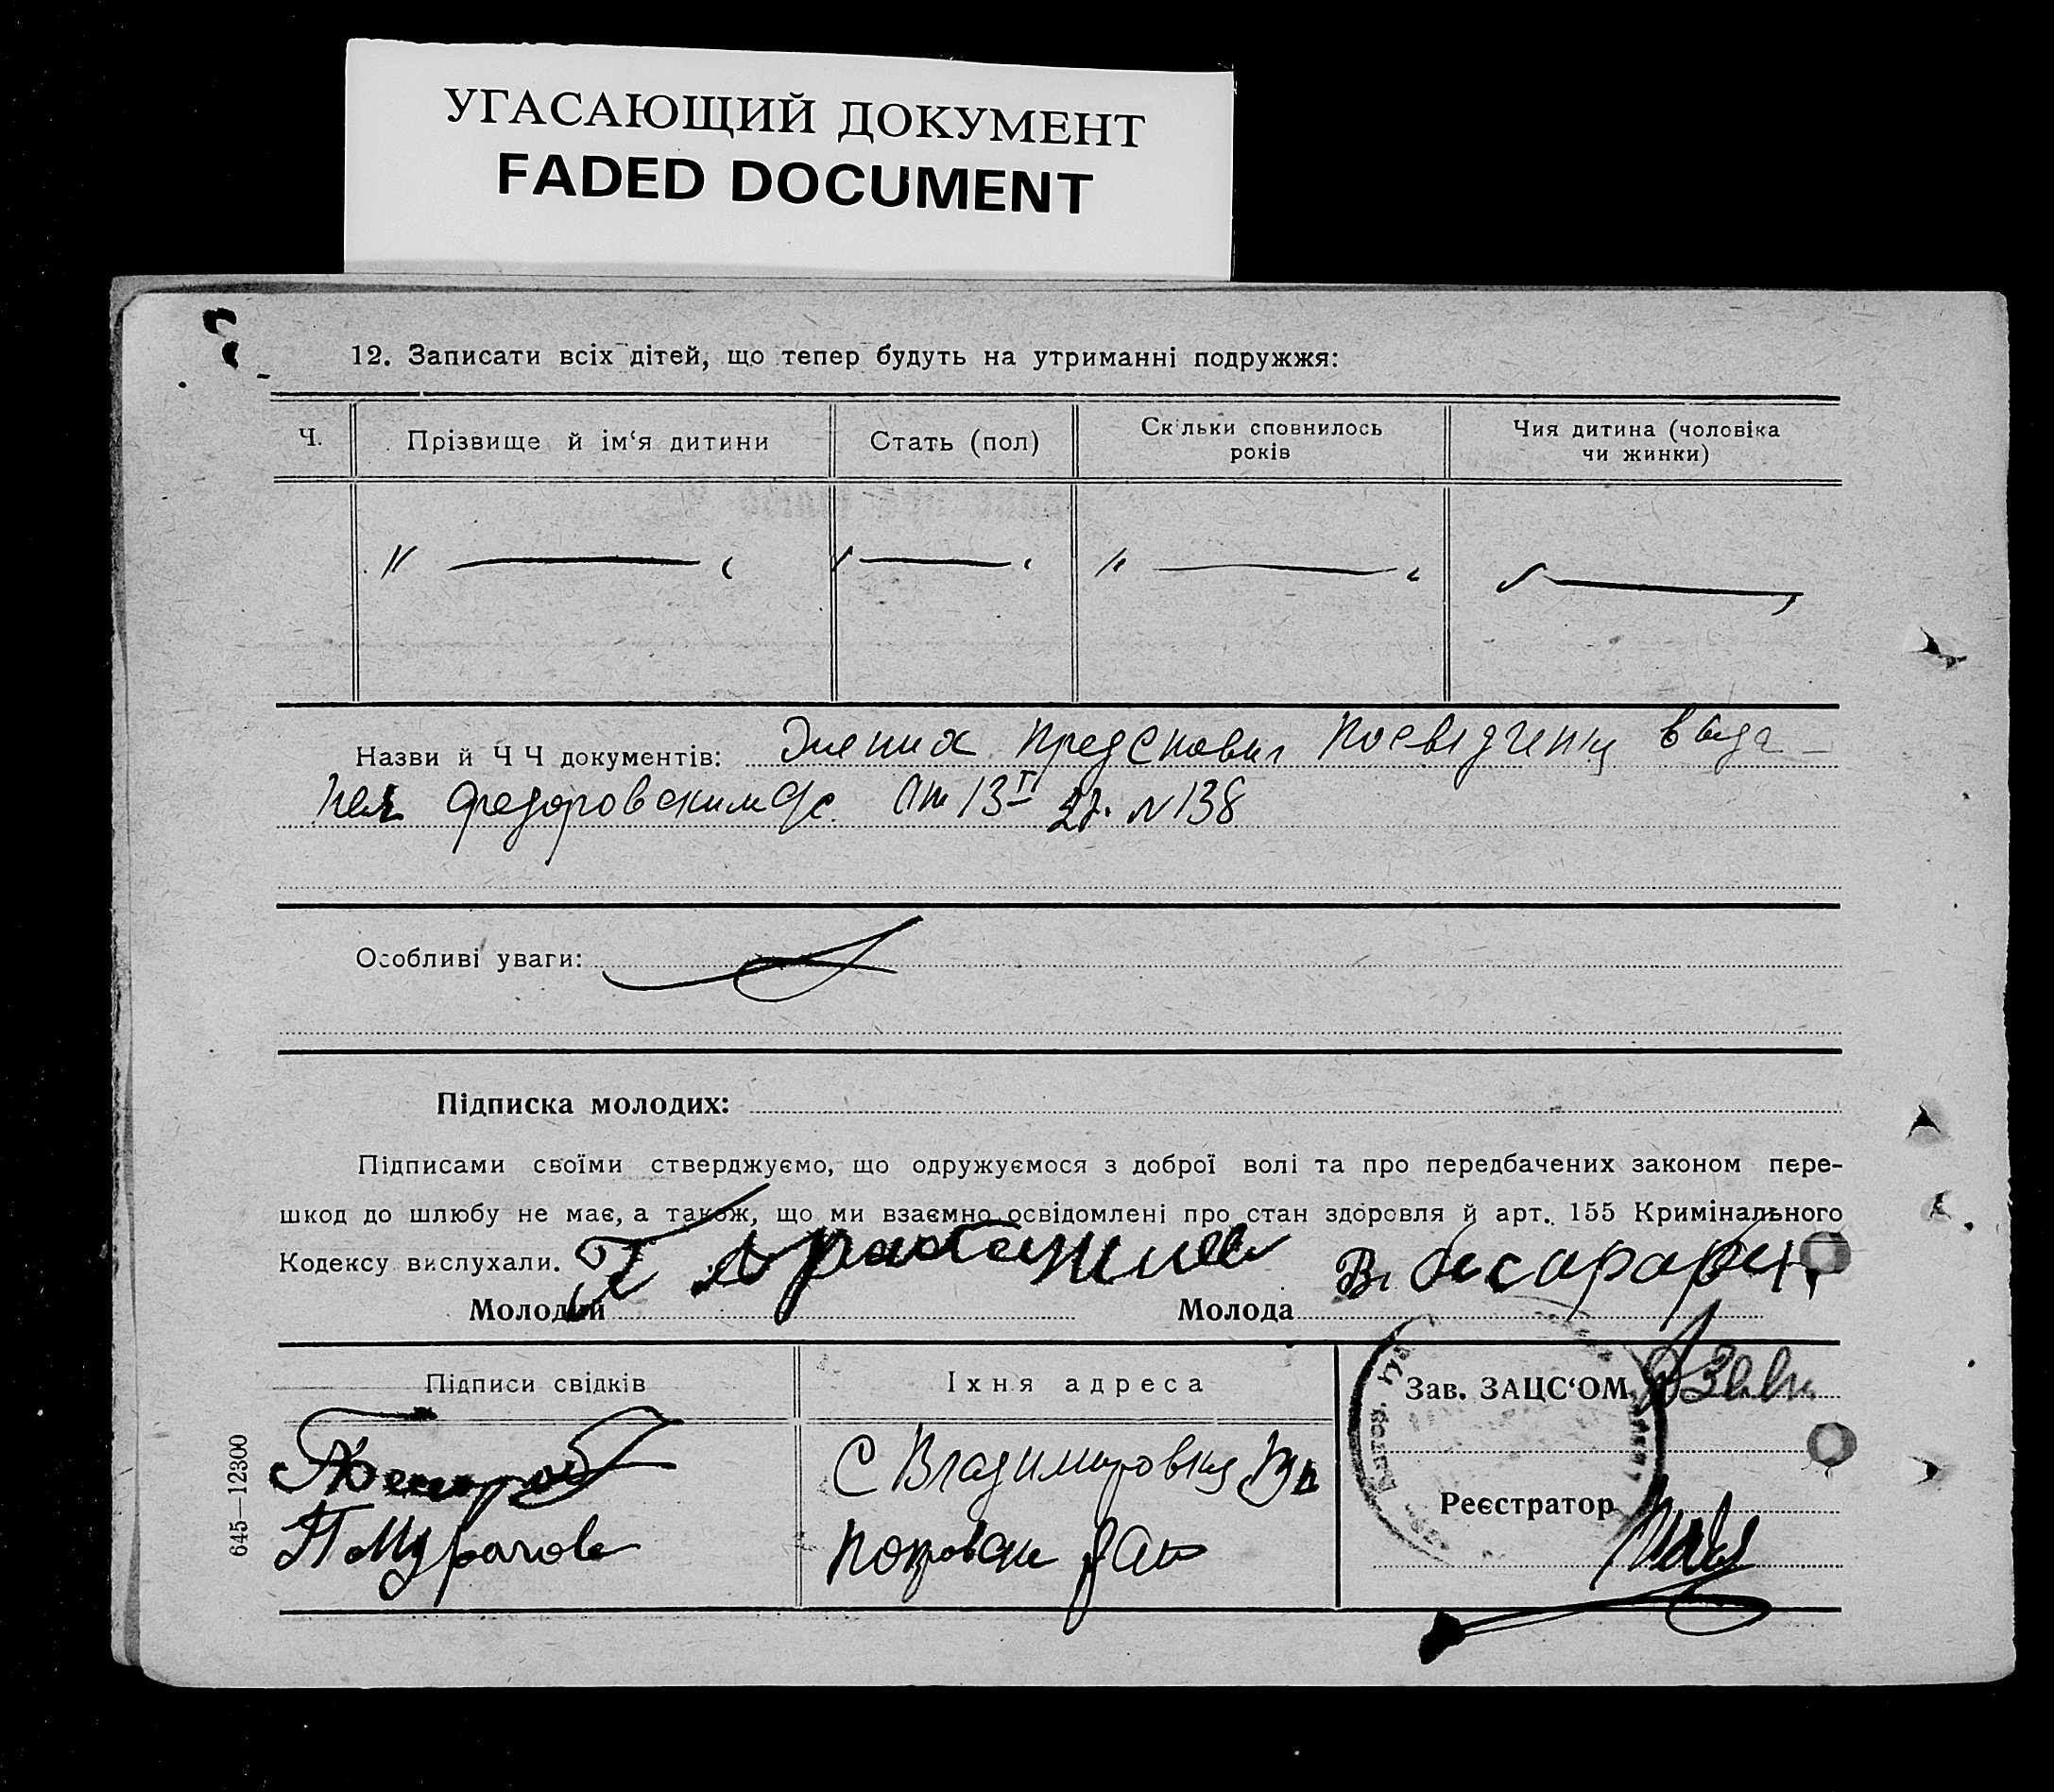 УГАСАЮЩИЙ ДОКУМЕНТ
FADED DOCUMENT
12. Записати всіх дітей, що тепер будуть на утриманні подружжя:
Ч.
Прізвище й ім‘я дитини
Стать (пол)
Скільки сповнилось
років
Чия дитина (чоловіка
чи жинки)
Назви й Ч Ч документів: Жених Представил Посвідченя выда-
ное Федоровским с/с. От 13 27. N 138
Особливі уваги:
Підписка молодих:
Підписами своїми стверджуємо, що одружуємося з доброї волі та про передбачених законом пере-
шкод до шлюбу не має, а також, що ми взаємно освідомлені про стан здоровля й арт. 155 Кримінального
Кодексу вислухали.
Молодий
Молода
Підписи свідків
Їхня адреса
Зав. ЗАЦС‘ОМ
С Владимировка
Покровски
Реєстратор
645—12300